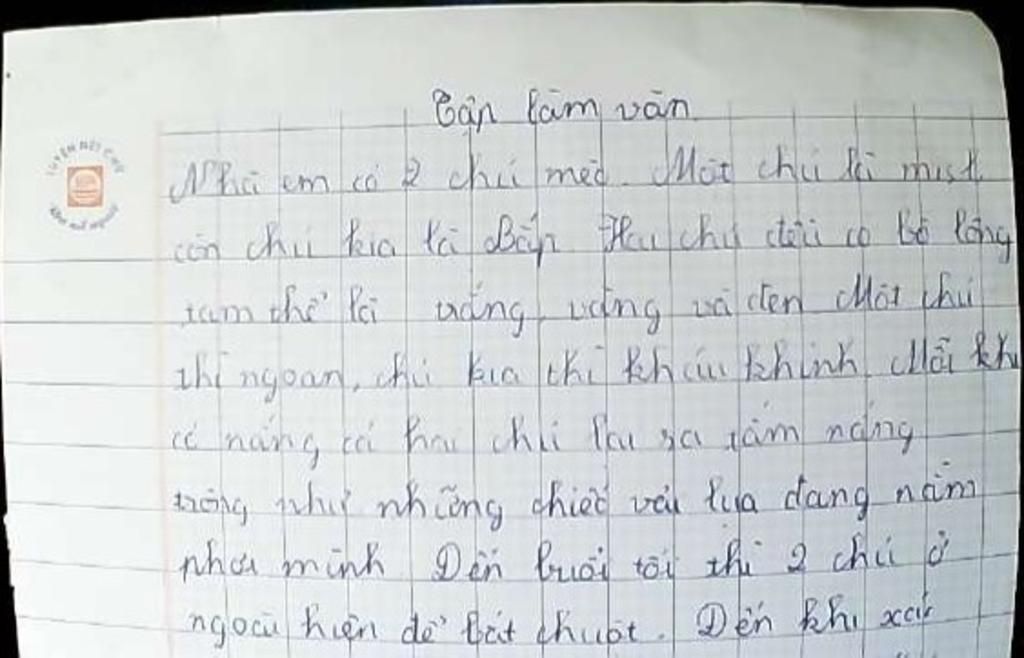 Tập làm văn
LUYỆN NÉT CHỮ
Nhà em có 2 chú mèo. Một chú là mist,
còn chú kia là Bắp. Hai chú đều có bộ lông
tam thể là trắng, vàng và đen. Một chú
thì ngoan, chú kia thì kháu khỉnh. Mỗi khi
có nắng cả hai chú lại ra tắm nắng
trông như những chiếc vải lụa đang nằm
phơi mình. Đến buổi tối thì 2 chú ở
ngoài hiên để bắt chuột. Đến khi xác